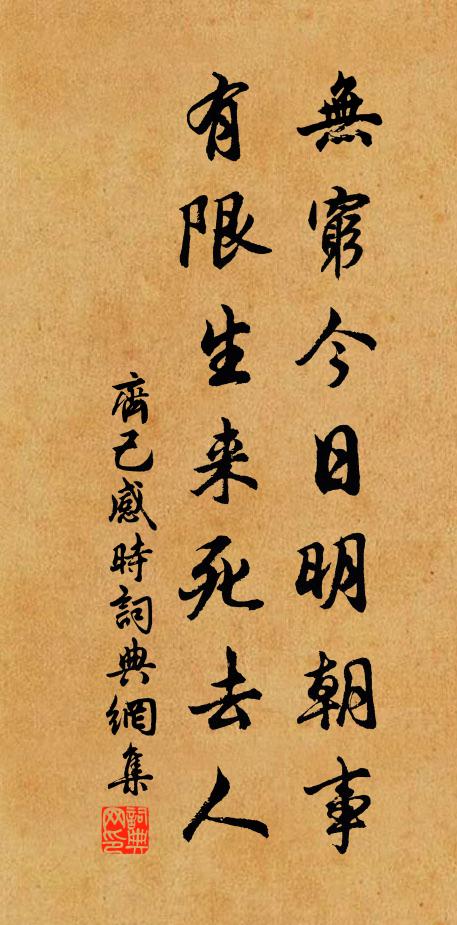 無窮今日明朝事
有限生来死去人
齊己感時詞典網集
詞典网印